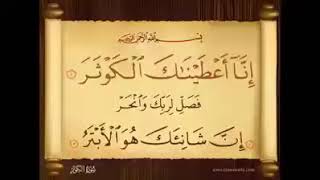 بِسْمِ اللَّهِ الرَّحْمَٰنِ الرَّحِيمِ
إِنَّا أَعْطَيْنَاكَ الْكَوْثَرَ ١
فَصَلِّ لِرَبِّكَ وَانْحَرْ
إِنَّ شَانِئَكَ هُوَ الْأَبْتَرُ ٣
سورة الكوثر